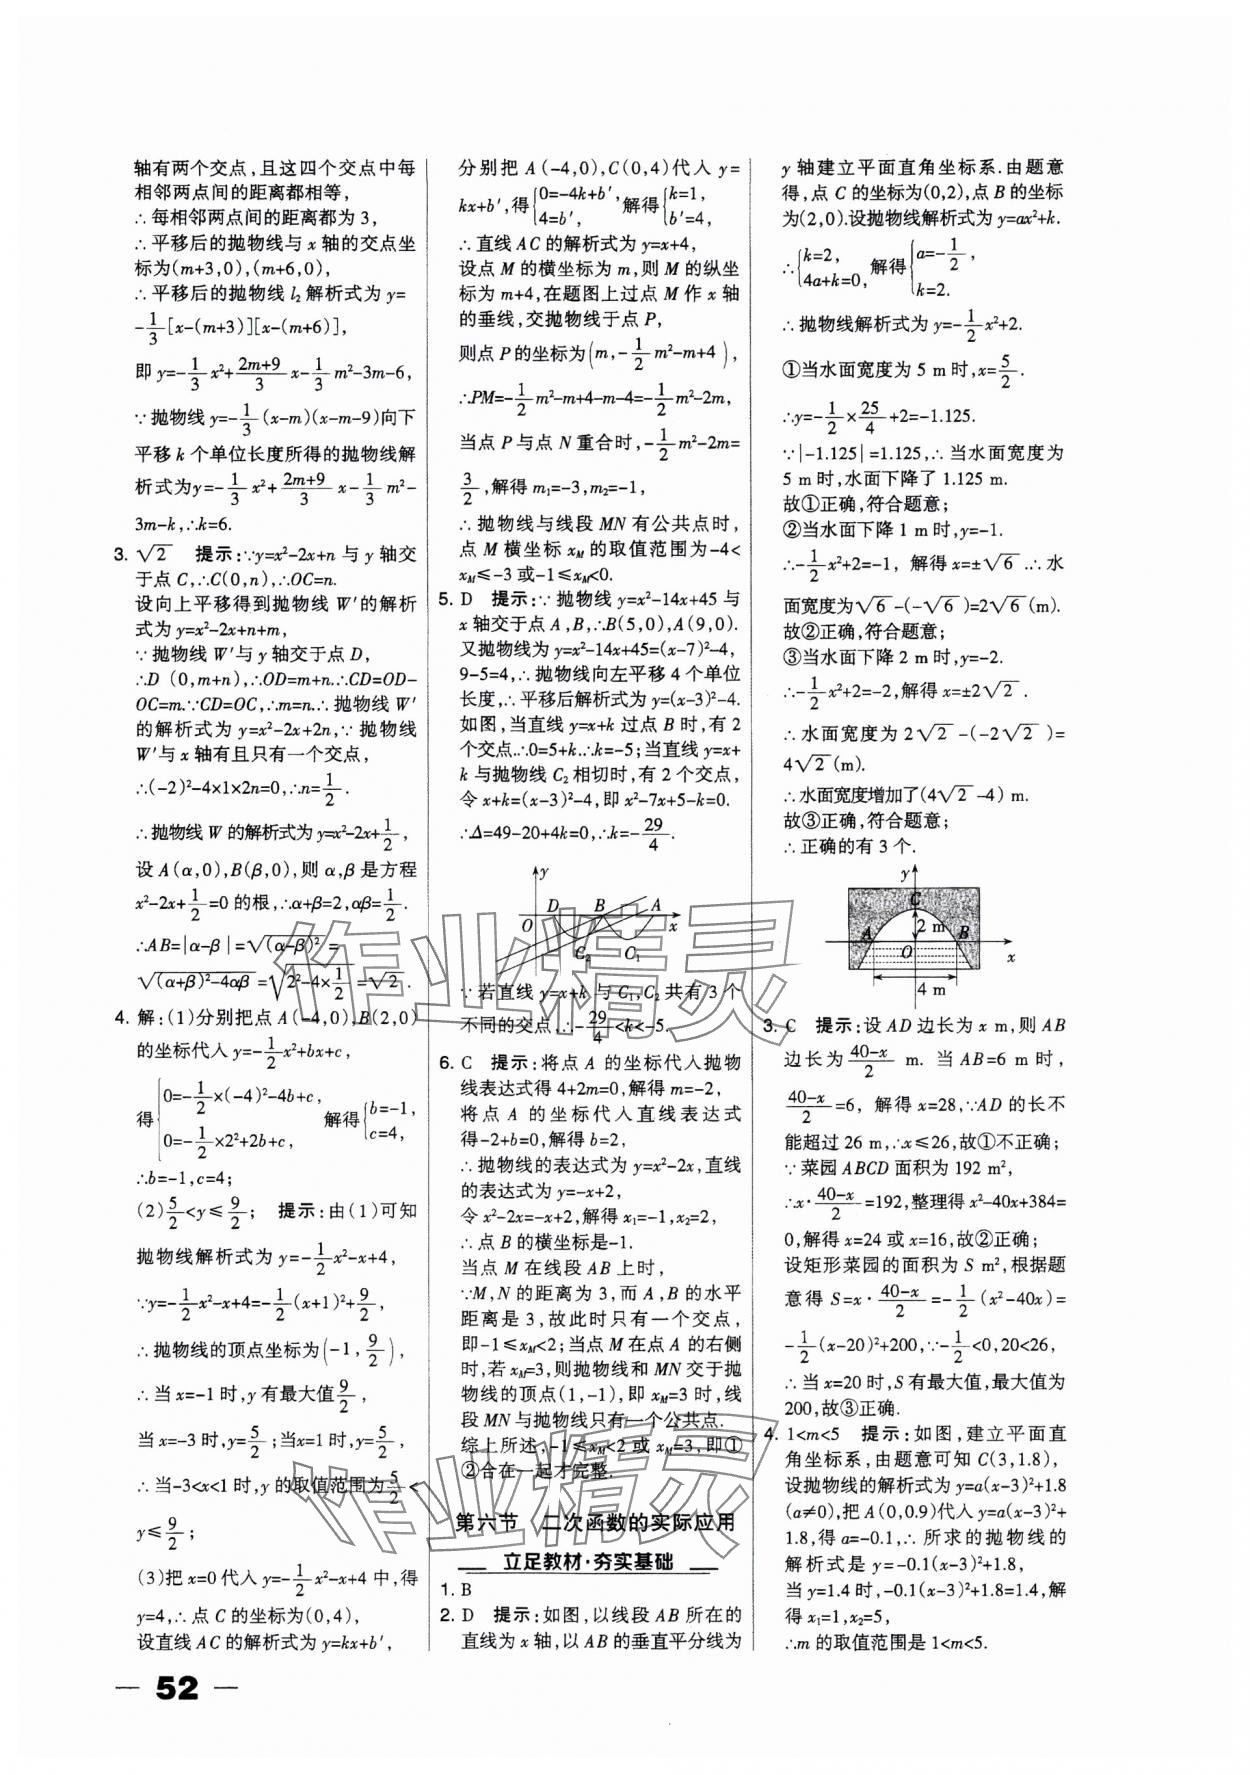 轴有两个交点,且这四个交点中每
相邻两点间的距离都相等,
∴每相邻两点间的距离都为3,
∴平移后的抛物线与x轴的交点坐
标为(m+3,0),(m+6,0),
∴平移后的抛物线l₂解析式为y=
-1/3[x-(m+3)][x-(m+6)],
即y=-1/3x²+(2m+9)/3x-1/3m²-3m-6,
∵抛物线y=-1/3(x-m)(x-m-9)向下
平移k个单位长度所得的抛物线解
析式为y=-1/3x²+(2m+9)/3x-1/3m²-
3m-k,∴k=6.
3. √2 提示:∵y=x²-2x+n与y轴交
于点C,∴C(0,n),∴OC=n.
设向上平移得到抛物线W′的解析
式为y=x²-2x+n+m,
∵抛物线W′与y轴交于点D,
∴D(0,m+n),∴OD=m+n.∴CD=OD-
OC=m.∵CD=OC,∴m=n.∴抛物线W′
的解析式为y=x²-2x+2n,∵抛物线
W′与x轴有且只有一个交点,
∴(-2)²-4×1×2n=0,∴n=1/2.
∴抛物线W的解析式为y=x²-2x+1/2,
设A(α,0),B(β,0),则α,β是方程
x²-2x+1/2=0的根,∴α+β=2,αβ=1/2.
∴AB=|α-β|=√(α-β)²=
√(α+β)²-4αβ=√2²-4×1/2=√2.
4. 解:(1)分别把点A(-4,0),B(2,0)
的坐标代入y=-1/2x²+bx+c,
得{0=-1/2×(-4)²-4b+c, 0=-1/2×2²+2b+c, 解得{b=-1, c=4,
∴b=-1,c=4;
(2)5/2<y≤9/2; 提示:由(1)可知
抛物线解析式为y=-1/2x²-x+4,
∵y=-1/2x²-x+4=-1/2(x+1)²+9/2,
∴抛物线的顶点坐标为(-1,9/2),
∴当x=-1时,y有最大值9/2,
当x=-3时,y=5/2;当x=1时,y=5/2,
∴当-3<x<1时,y的取值范围为5/2<
y≤9/2;
(3)把x=0代入y=-1/2x²-x+4中,得
y=4,∴点C的坐标为(0,4),
设直线AC的解析式为y=kx+b′,
— 52 —
分别把A(-4,0),C(0,4)代入y=
kx+b′,得{0=-4k+b′, 4=b′, 解得{k=1, b′=4,
∴直线AC的解析式为y=x+4,
设点M的横坐标为m,则M的纵坐
标为m+4,在题图上过点M作x轴
的垂线,交抛物线于点P,
则点P的坐标为(m,-1/2m²-m+4),
∴PM=-1/2m²-m+4-m-4=-1/2m²-2m,
当点P与点N重合时,-1/2m²-2m=
3/2,解得m₁=-3,m₂=-1,
∴抛物线与线段MN有公共点时,
点M横坐标xM的取值范围为-4<
xM≤-3或-1≤xM<0.
5. D 提示:∵抛物线y=x²-14x+45与
x轴交于点A,B,∴B(5,0),A(9,0).
又抛物线为y=x²-14x+45=(x-7)²-4,
9-5=4,∴抛物线向左平移4个单位
长度,∴平移后解析式为y=(x-3)²-4.
如图,当直线y=x+k过点B时,有2
个交点∴0=5+k∴k=-5;当直线y=x+
k与抛物线C₂相切时,有2个交点,
令x+k=(x-3)²-4,即x²-7x+5-k=0.
∴Δ=49-20+4k=0,∴k=-29/4.
y
D B A
O x
C₂ C₁
∵若直线y=x+k与C₁,C₂共有3个
不同的交点,∴-29/4<k<-5.
6. C 提示:将点A的坐标代入抛物
线表达式得4+2m=0,解得m=-2,
将点A的坐标代入直线表达式
得-2+b=0,解得b=2,
∴抛物线的表达式为y=x²-2x,直线
的表达式为y=-x+2,
令x²-2x=-x+2,解得x₁=-1,x₂=2,
∴点B的横坐标是-1.
当点M在线段AB上时,
∵M,N的距离为3,而A,B的水平
距离是3,故此时只有一个交点,
即-1≤xM<2;当点M在点A的右侧
时,若xM=3,则抛物线和MN交于抛
物线的顶点(1,-1),即xM=3时,线
段MN与抛物线只有一个公共点.
综上所述,-1≤xM<2或xM=3,即①
②合在一起才完整.
第六节 二次函数的实际应用
立足教材·夯实基础
1. B
2. D 提示:如图,以线段AB所在的
直线为x轴,以AB的垂直平分线为
y轴建立平面直角坐标系.由题意
得,点C的坐标为(0,2),点B的坐标
为(2,0).设抛物线解析式为y=ax²+k.
∴{k=2, 4a+k=0, 解得{a=-1/2, k=2.
∴抛物线解析式为y=-1/2x²+2.
①当水面宽度为5 m时,x=5/2.
∴y=-1/2×25/4+2=-1.125.
∵|-1.125|=1.125,∴当水面宽度为
5 m时,水面下降了1.125 m.
故①正确,符合题意;
②当水面下降1 m时,y=-1.
∴-1/2x²+2=-1,解得x=±√6.∴水
面宽度为√6-(-√6)=2√6(m).
故②正确,符合题意;
③当水面下降2 m时,y=-2.
∴-1/2x²+2=-2,解得x=±2√2.
∴水面宽度为2√2-(-2√2)=
4√2(m).
∴水面宽度增加了(4√2-4) m.
故③正确,符合题意;
∴正确的有3个.
y
C
A 2 m B
O x
4 m
3. C 提示:设AD边长为x m,则AB
边长为(40-x)/2 m.当AB=6 m时,
(40-x)/2=6,解得x=28,∵AD的长不
能超过26 m,∴x≤26,故①不正确;
∵菜园ABCD面积为192 m²,
∴x·(40-x)/2=192,整理得x²-40x+384=
0,解得x=24或x=16,故②正确;
设矩形菜园的面积为S m²,根据题
意得S=x·(40-x)/2=-1/2(x²-40x)=
-1/2(x-20)²+200,∵-1/2<0,20<26,
∴当x=20时,S有最大值,最大值为
200,故③正确.
4. 1<m<5 提示:如图,建立平面直
角坐标系,由题意可知C(3,1.8),
设抛物线的解析式为y=a(x-3)²+1.8
(a≠0),把A(0,0.9)代入y=a(x-3)²+
1.8,得a=-0.1,∴所求的抛物线的
解析式是y=-0.1(x-3)²+1.8,
当y=1.4时,-0.1(x-3)²+1.8=1.4,解
得x₁=1,x₂=5,
∴m的取值范围是1<m<5.
作业精灵
作业精灵